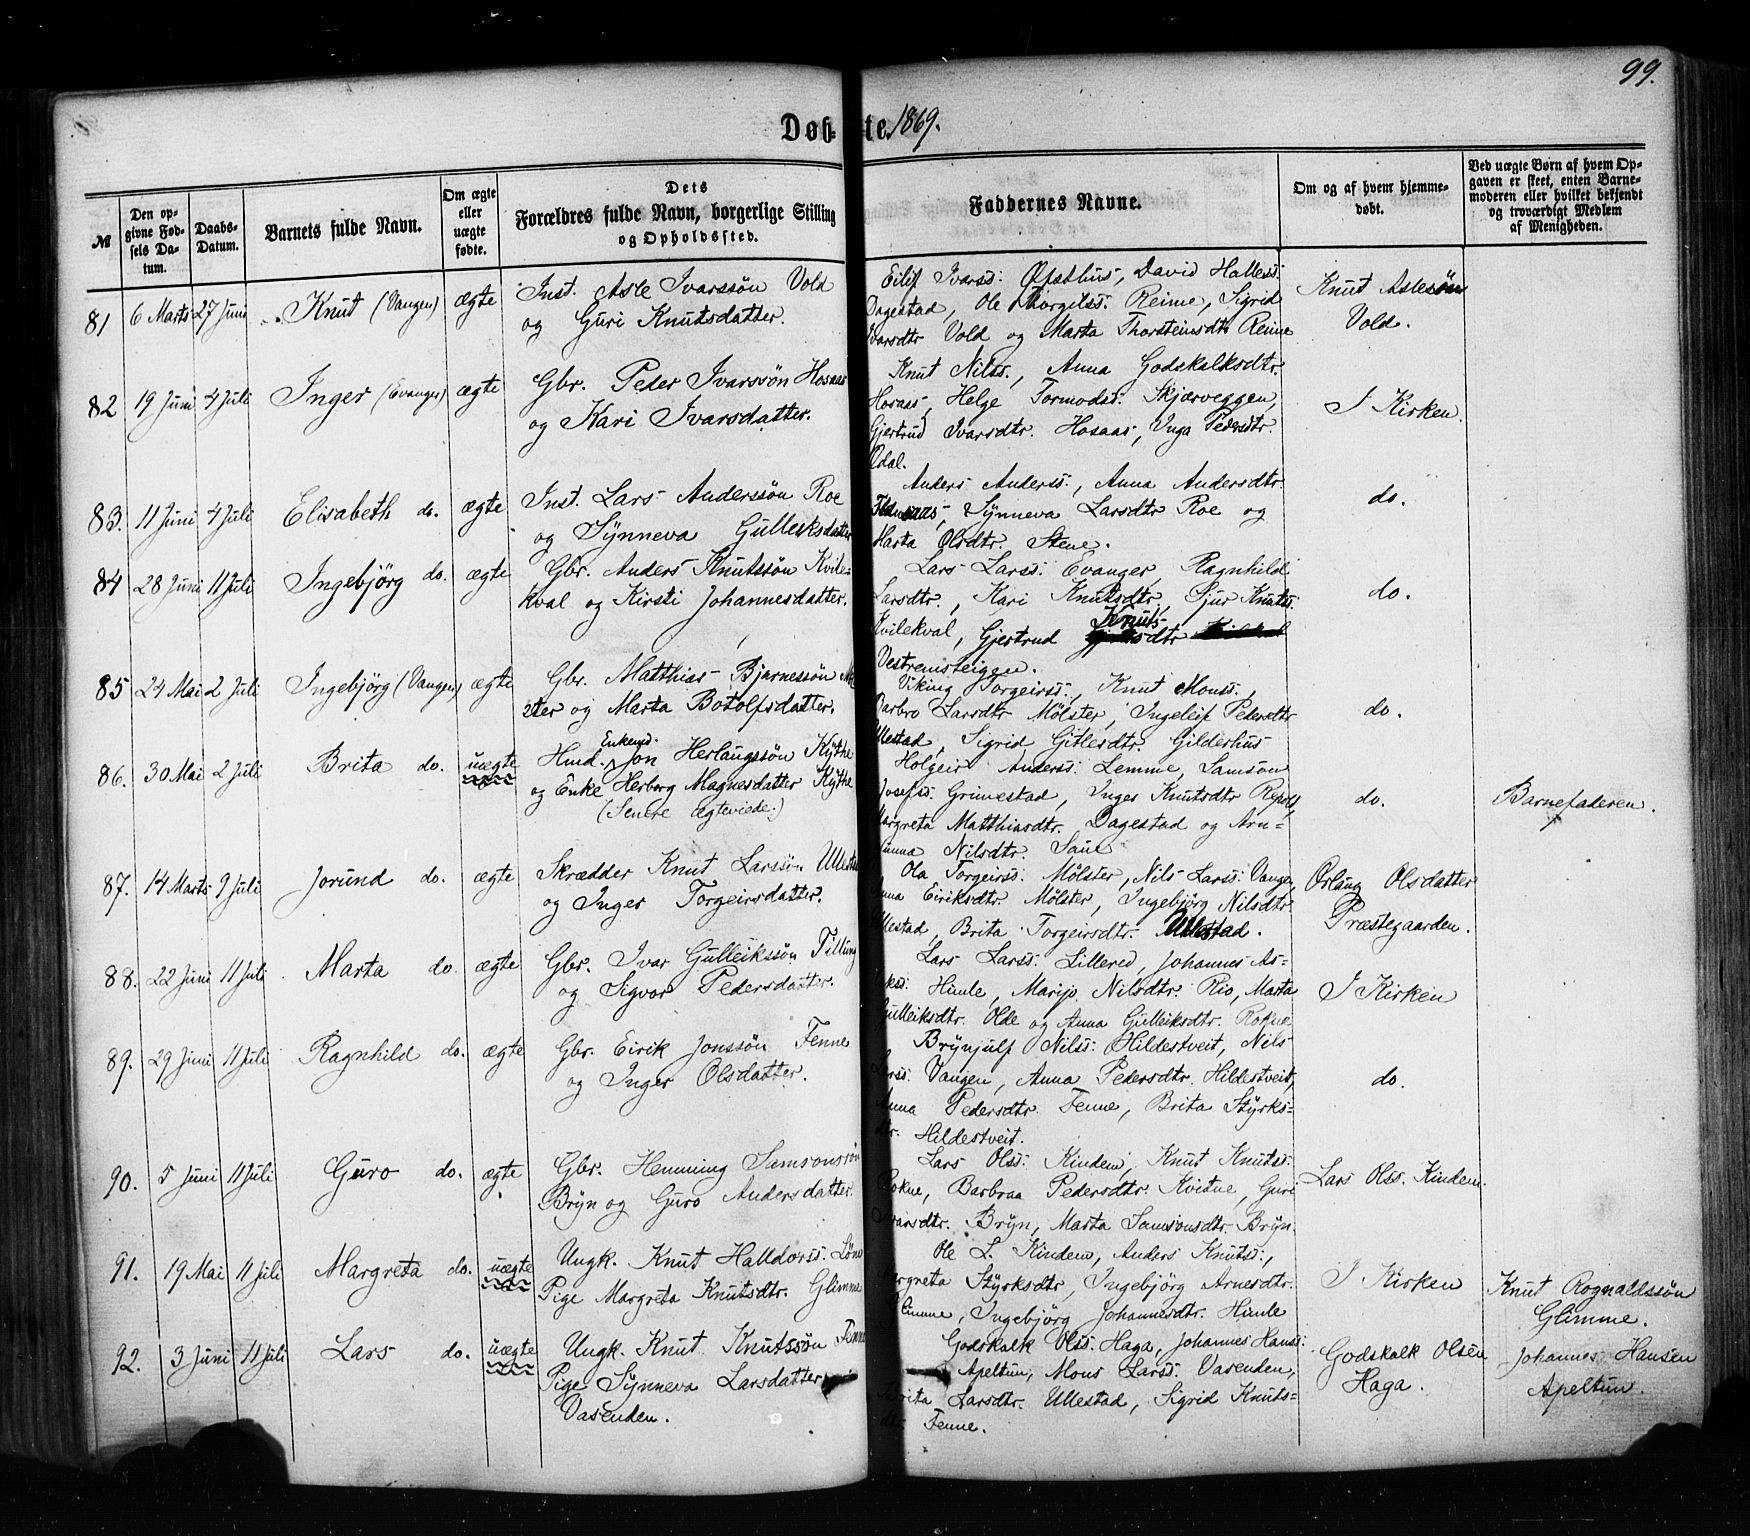 99.
Døbte 1869.
№
Den opgivne Fødsels Datum.
Daabs-Datum.
Barnets fulde Navn.
Om ægte eller uægte fødte.
Dets Forældres fulde Navn, borgerlige Stilling og Opholdssted.
Faddernes Navne.
Om og af hvem hjemmedøbt.
Ved uægte Børn af hvem Opgaven er skeet, enten Barnemoderen eller hvilket bekjendt og troværdigt Medlem af Menigheden.
81 6 Marts 27 Juni Knut (Vangen) ægte
Inst. Asle Ivarssön Vold
og Guri Knutsdatter.
Eilif Ivarss: Öfsthus, David Halless:
Dagestad, Ole Thorgilss: Reime, Sigrid
Ivarsdtr Vold og Marta Thorsteinsdtr Reime
Knut Aslesön
Vold.
82 19 Juni 4 Juli Inger (Evanger) ægte
Gbr. Peder Ivarssön Hosaas
og Kari Ivarsdatter.
Knut Nilss., Anna Godskalksdtr.
Hosaas, Helge Tormodss: Skjærveggen,
Gjertrud Ivarsdtr. Hosaas, Inga Pedersdtr.
I Kirken
83. 11 Juni 4 Juli Elisabeth do. ægte
Inst. Lars Anderssön Roe
og Synneva Gulleiksdatter
Anders Anderss., Anna Andersdtr.
Synneva Larsdtr Roe og
Marta Olsdtr. Stene.
do.
84 28 Juni 11 Juli Ingebjörg do. ægte
Gbr. Anders Knutssön Kvile-
kval og Kirsti Johannesdatter.
Lars Larss: Evanger, Ragnhild
Larsdtr., Kari Knutsdtr, Sjur Knutss:
Kvilekval, Gjertrud Knuts-
dtr
Vestremsteigen.
do.
85 24 Mai 2 Juli Ingebjörg (Vangen) ægte
Gbr. Matthias Bjarnessön Möl-
ster og Marta Botolfsdatter.
Viking Torgeirss., Knut Monss.,
Barbro Larsdtr Mölster, Ingeleif Pedersdtr
Ullestad, Sigrid Gitlesdtr. Gilderhus
do.
86. 30 Mai 2 Juli Brita do. uægte
Enkemd.
Hmd. Jon Herlaugssön Kythe
og Enke Herborg Magnesdatter Kythe
(Senere Ægteviede.)
Holgeir Anderss: Lemme, Samson
Josefss. Grimestad, Inger Knutsdtr
Margreta Matthiasdtr. Dagestad og Arn-
gunna Nilsdtr. Saue
do.
Barnefaderen.
87. 14 Marts 9 Juli Jorund do. ægte
Skrædder Knut Larssön Ullestad
og Inger Torgeirsdatter.
Ola Torgeirss: Mölster, Nils Larss: Vangen,
Anna Eiriksdtr Mölster, Ingebjörg Nilsdtr
Ullestad, Brita Torgeirsdtr. Ullestad.
Orlaug Olsdatter
Præstegaarden.
88. 22 Juni 11 Juli Marta do ægte
Gbr. Ivar Gulleikssön Tillung
og Sigvor Pedersdatter.
Lars Larss. Lillered, Johannes As-
lakss: Himle, Marijo Nilsdtr. Rio, Marta
Gulleiksdtr. Olde og Anna Gulleiksdtr. Rokne
I Kirken
89. 29 Juni 11 Juli Ragnhild do. ægte
Gbr. Eirik Jonssön Fenne
og Inger Olsdatter.
Brynjulf Nilss: Hildestveit, Nils
Larss: Vangen, Anna Pedersdtr. Hildestveit,
Anna Pedersdtr. Fenne, Brita Styrks-
dtr. Hildestveit.
do.
90. 5 Juni 11 Juli Guro do. ægte
Gbr. Henning Samsonssön
Bryn og Guro Andersdatter.
Lars Olss: Kindem, Knut Knutss:
Rokne, Barbraa Pedersdtr. Kvitne, Guri
Ivarsdtr. Bryn, Marta Samsonsdtr. Bryn.
Lars Olss. Kindem.
91. 19 Mai 11 Juli Margreta do. uægte
Ungk. Knut Halldorss: Löne
Pige Margreta Knutsdtr. Glimme
Ole L. Kindem, Anders Knutss:,
Margreta Styrksdtr, Ingebjörg Arnesdtr.
Glimme, Ingebjörg Johannesdtr. Himle
I Kirken
Knut Rognaldssön
Glimme.
92. 3 Juni 11 Juli Lars do. uægte
Ungk. Knut Knutssön Fenne
Pige Synneva Larsdatter
Vasenden.
Godskalk Olss: Haga, Johannes Hanss:
Apeltun, Mons Larss: Vasenden,
Brita Larsdtr. Ullestad, Sigrid Knuts-
dtr. Fenne.
Godskalk Olsen
Haga.
Johannes Hansen
Apeltun.